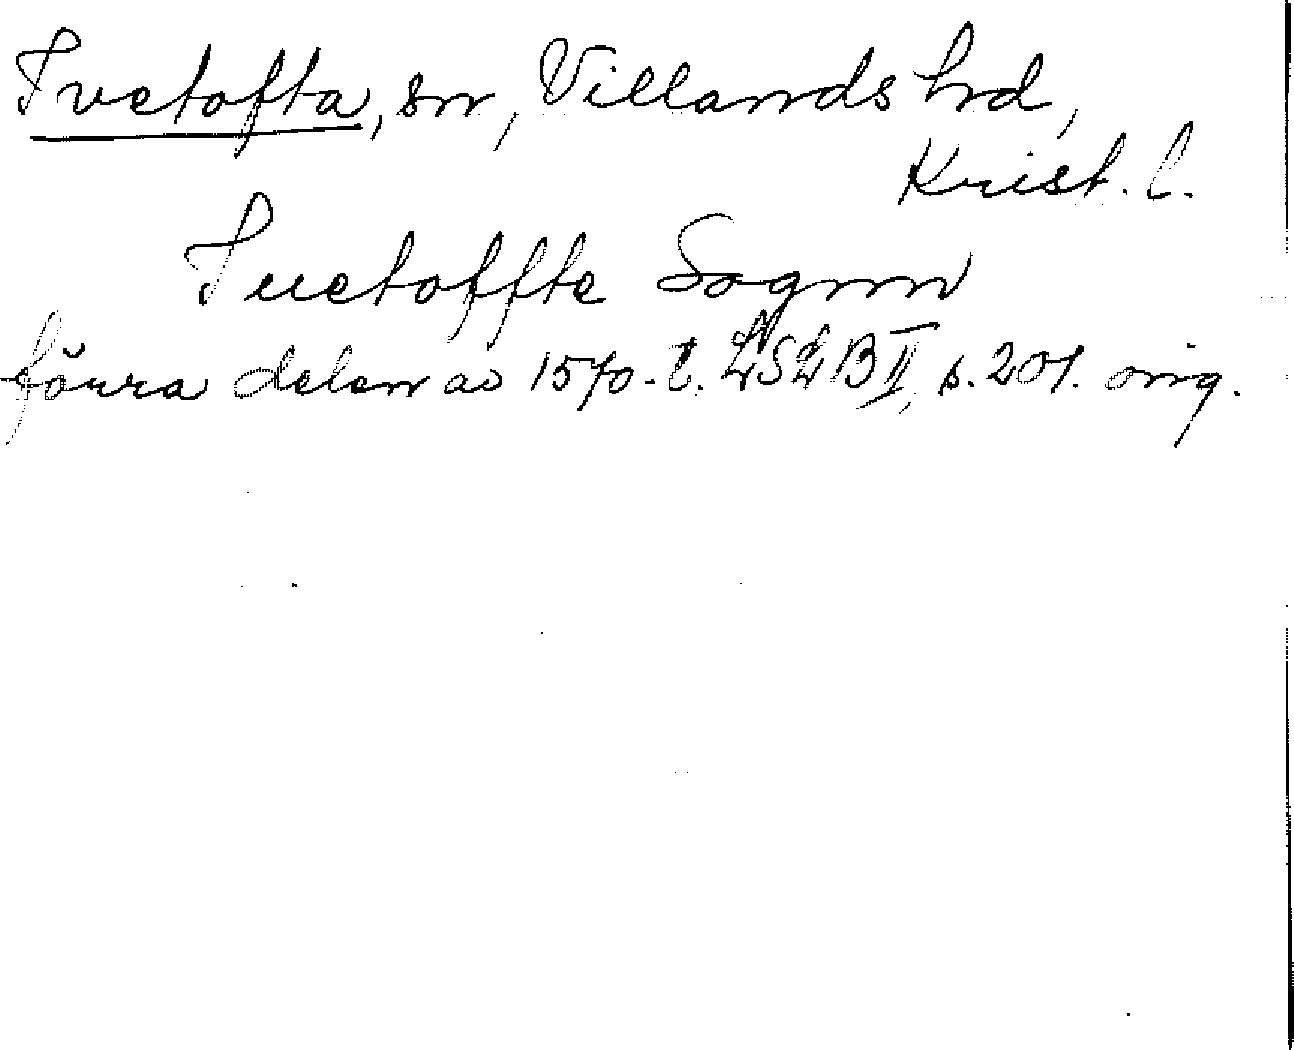 Ivetofta, sn, Villands hrd,
Krist. l.
Iuetoffte Sognn
förra delen av 1570-t. LSLB II, s. 201. orig.